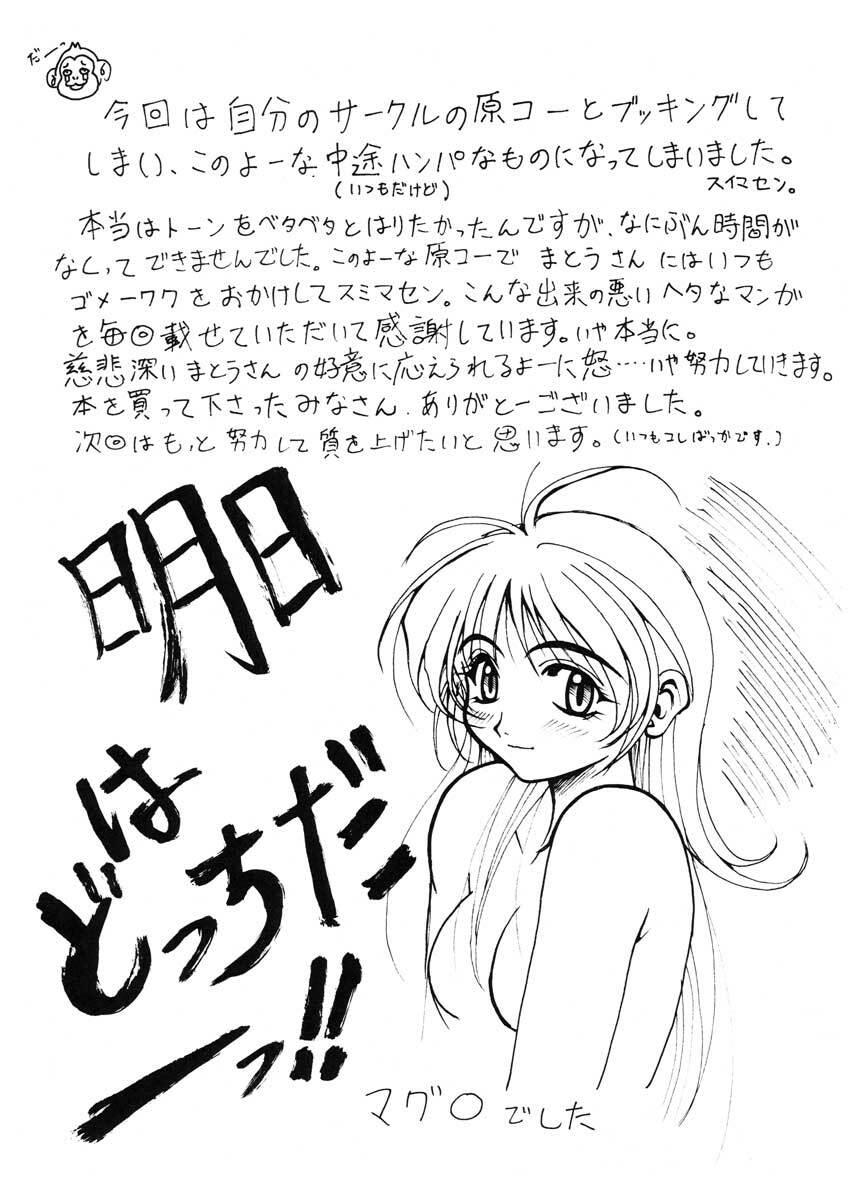 だーっ
今回は自分のサークルの原コーとブッキングして
しまい、このよーな中途ハンパなものになってしまいました。
(いつもだけど)
スイマセン。
本当はトーンをベタベタとはりたかったんですが、なにぶん時間が
なくってできませんでした。このよーな原コーで まとうさん にはいつも
ゴメーワクをおかけしてスミマセン。こんな出来の悪いヘタなマンガ
を毎回載せていただいて感謝しています。いや本当に。
慈悲深いまとうさんの好意に応えられるよーに怒……いや努力していきます。
本を買って下さったみなさん、ありがとーございました。
次回はもっと努力して質を上げたいと思います。(いつもコレばっかです.)
明日
は
どっちだ
ーっ!!
マグ〇でした